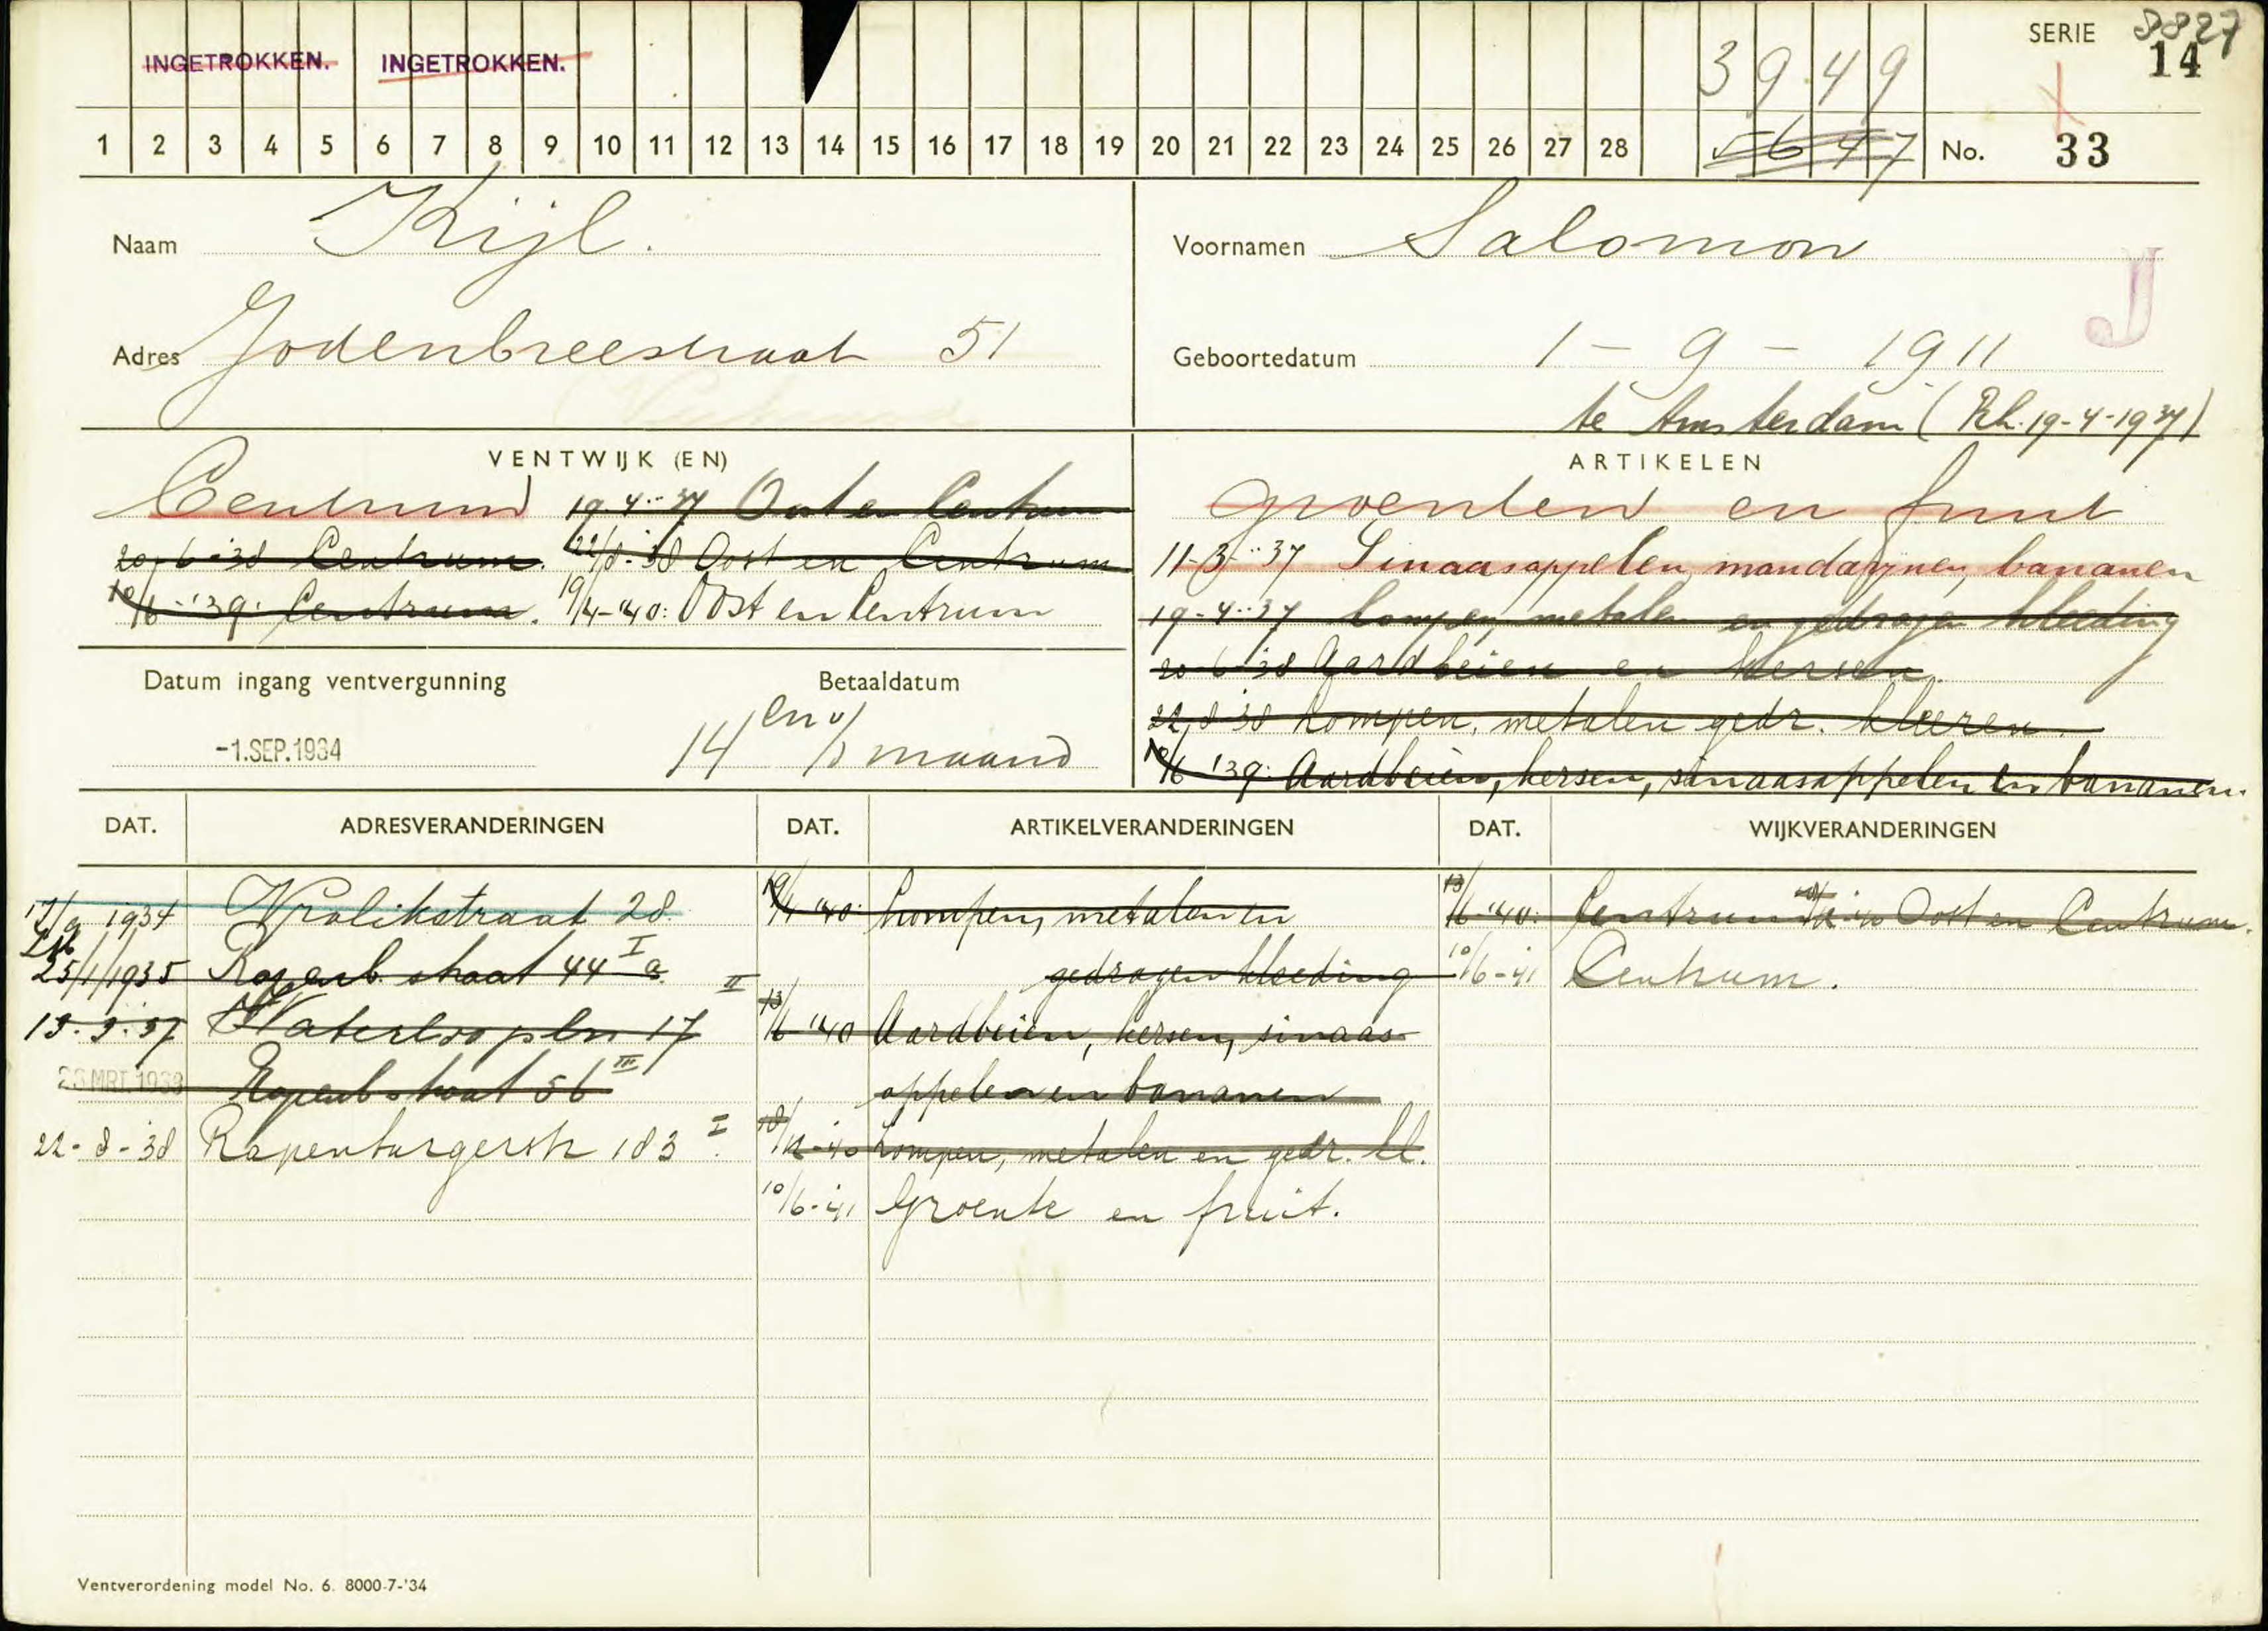 INGETROKKEN. INGETROKKEN.
SERIE 8827
14
3949
1 2 3 4 5 6 7 8 9 10 11 12 13 14 15 16 17 18 19 20 21 22 23 24 25 26 27 28 5647 No. 33
Naam Kijl.
Voornamen Salomon
J
Adres Jodenbreestraat 51
Geboortedatum 1-9-1911
te Amsterdam (Rh. 19-4-1937)
VENTWIJK (EN)
Centrum 19-4-'37 Oost en Centrum
20-6-'38 Centrum. 22/8-'38 Oost en Centrum
10/6-'39: Centrum. 19/4-'40: Oost en Centrum
ARTIKELEN
groenten en fruit
11-3-'37 Sinaasappelen, mandarijnen, bananen
19-4-'37 lompen, metalen en gedragen kleeding
20-6-'38 Aardbeien en kersen.
22-8-'38 Lompen, metalen gedr. kleeren.
10/6 '39: Aardbeien, kersen, sinaasappelen en bananen.
Datum ingang ventvergunning
-1.SEP.1934
Betaaldatum
14en v/d maand
DAT. ADRESVERANDERINGEN DAT. ARTIKELVERANDERINGEN DAT. WIJKVERANDERINGEN
17/9 1934 Vrolikstraat 28.
25/1/1935 Rapenb. straat 44 I
Waterloopln 17 II
23 MRT. 1938 Rapenb straat 56 III
22-8-'38 Rapenburgerstr 183 I.
19/4 '40: Lompen, metalen en
gedragen kleeding
13/6-'40 Aardbeien, kersen, sinaas-
appelen en bananen
18/12-'40 Lompen, metalen en gedr. kl.
10/6-'41 Groente en fruit.
13/6-'40: Centrum 18/12-'40 Oost en Centrum.
10/6-'41 Centrum.
Ventverordening model No. 6. 8000-7-'34